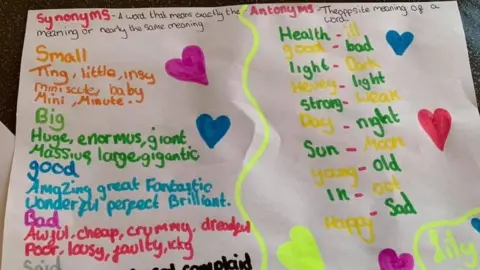 Synonyms - A word that means exactly the
meaning or nearly the same meaning
Small
Ting, little, insy
miniscule, baby
Mini, Minute.
Big
Huge, enormus, giant
Massius large gigantic
good
Amazing great Fantastic
Wonderful perfect Brilliant.
Bad
Awful, cheap, crummy, dreadful
Poor, lousy, faulty, icky
Said
complaid
Antonyms - The opposite meaning of a
word.
Health - ill
good - bad
light - Dark
Heavey - light
strong - weak
Day - night
Sun - Moon
young - old
In - out
Happy - Sad
Lily